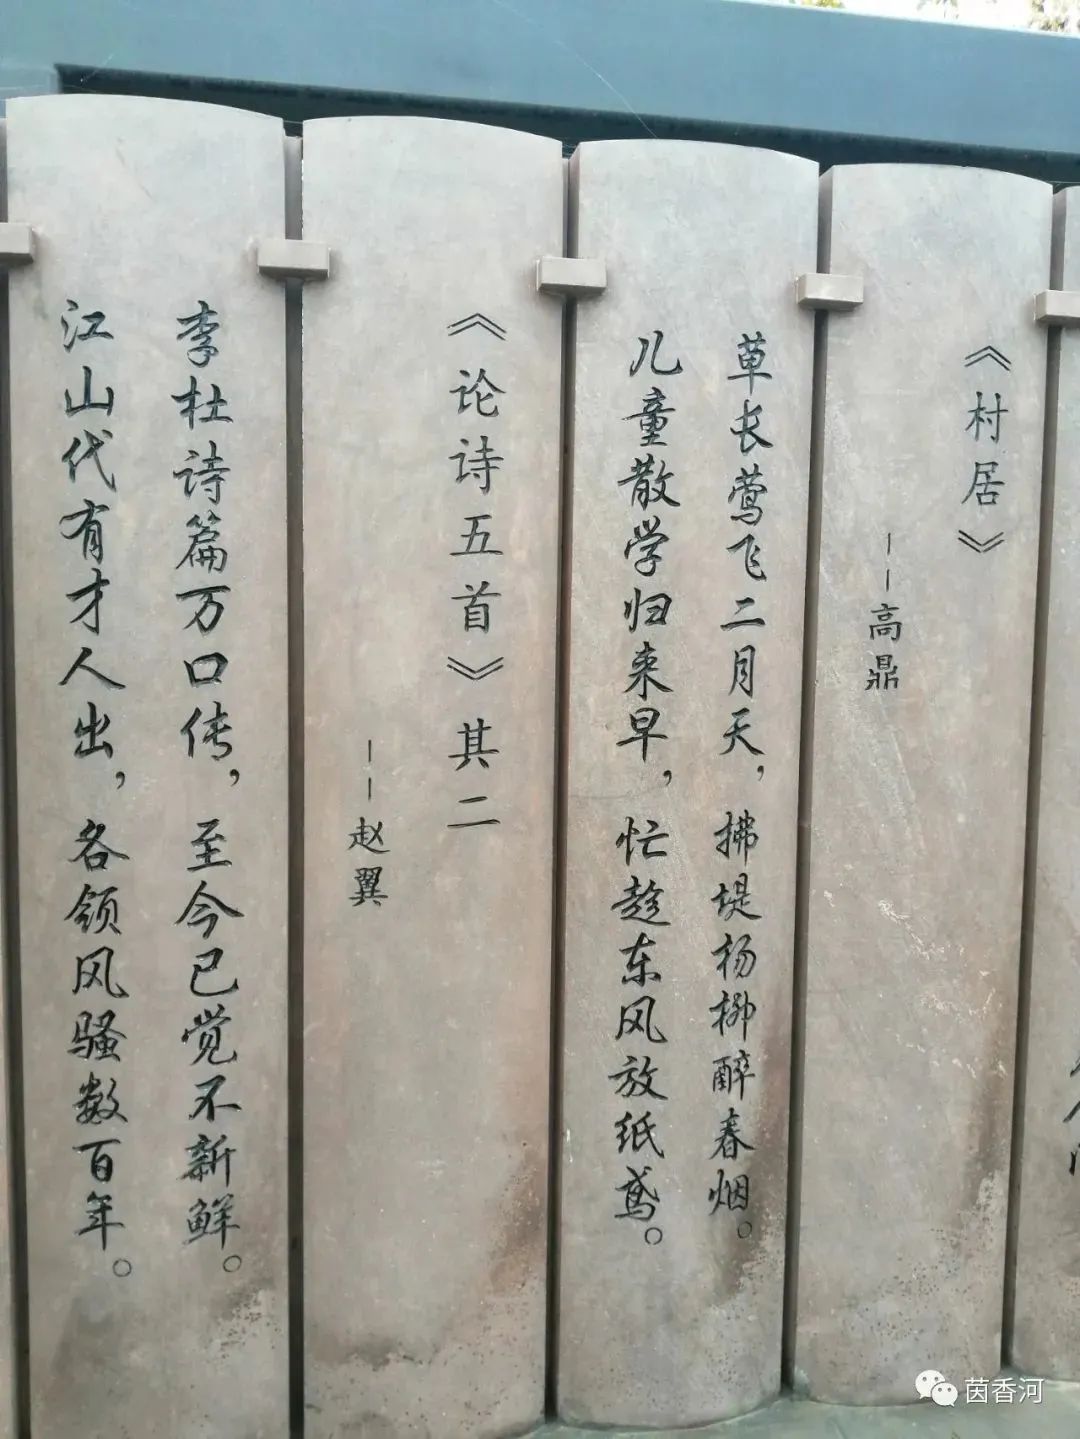 《村居》
——高鼎
草长莺飞二月天，拂堤杨柳醉春烟。
儿童散学归来早，忙趁东风放纸鸢。
《论诗五首》其二
——赵翼
李杜诗篇万口传，至今已觉不新鲜。
江山代有才人出，各领风骚数百年。
茵香河